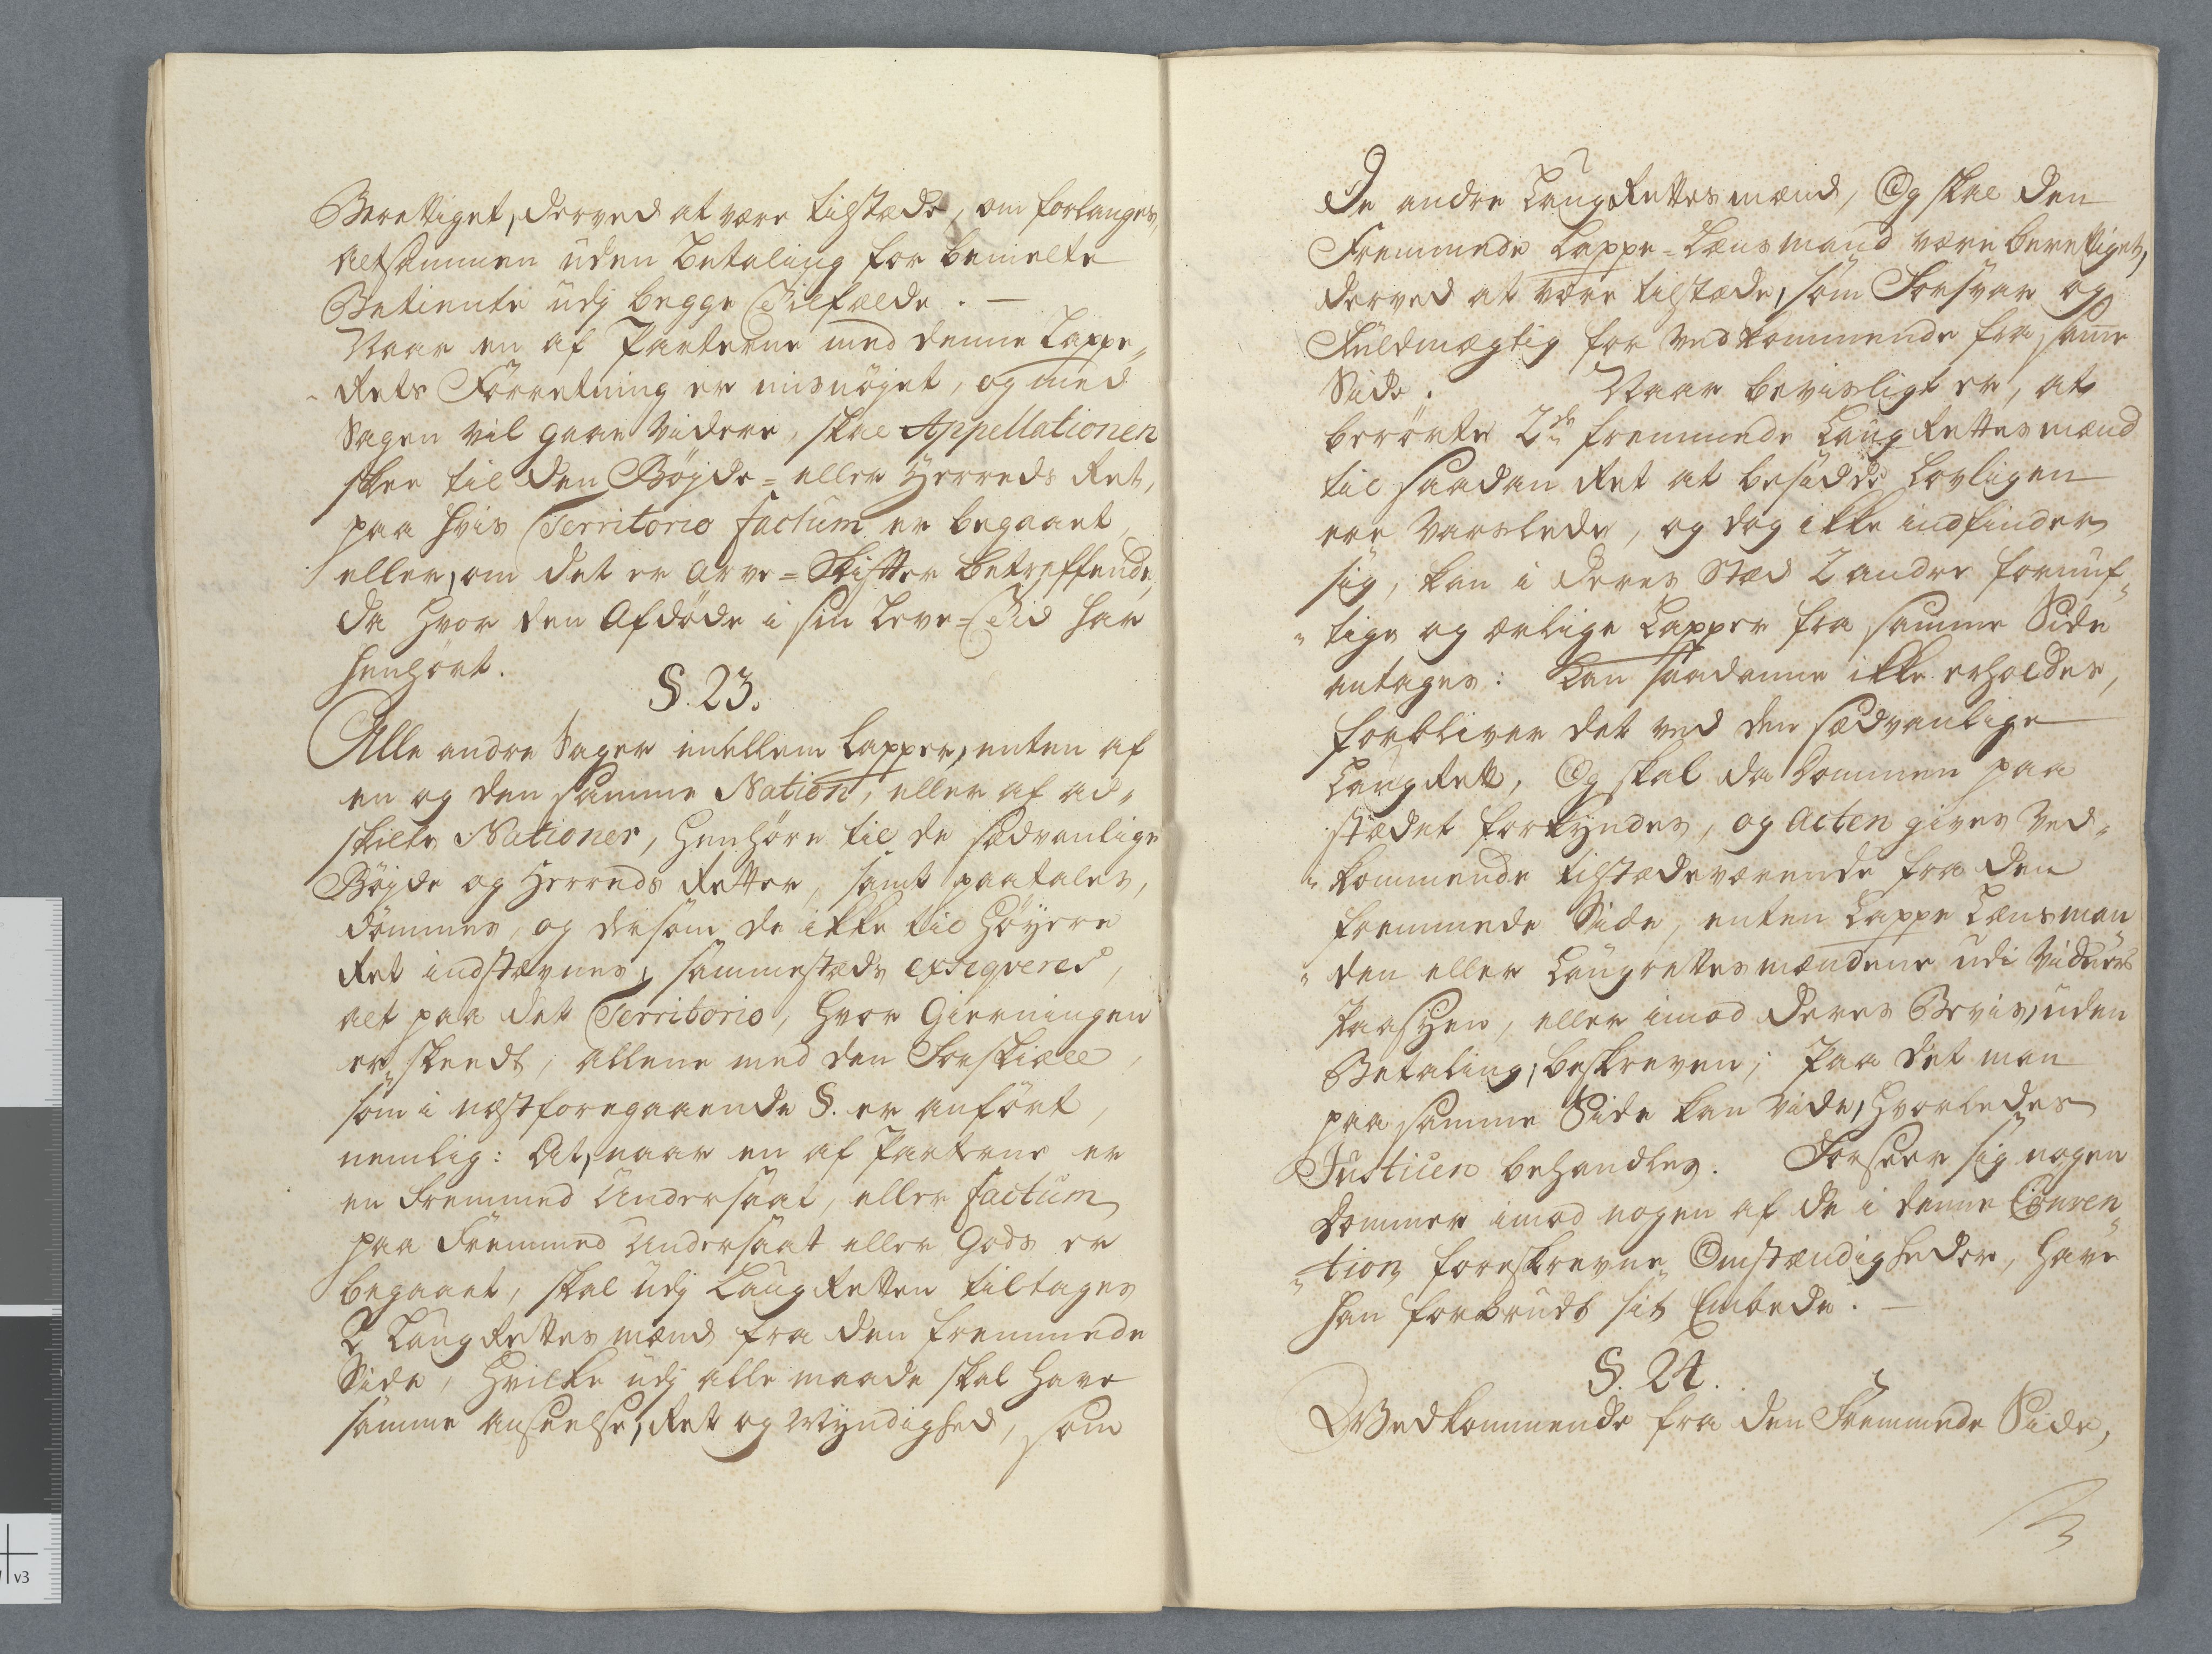 Berettiget, derved at være tilstæde, om forlanges,
altsammen uden Betaling for bemelte
Betiente udj begge Tilfælde. —
Naar en af Parterne med denne Lappe„
„Rets Forretning er misnöjet, og med
Sagen vil gaae videre, skal Appellationen
skee til den Böjde= eller Herreds Ret,
paa hvis Territorio factum er begaaet,
eller, om det er Arve=Skifter betreffende,
da hvor den Afdöde i sin Leve=Tid har
henhört.
§. 23.
Alle andre Sager imellem Lapper, enten af
en og den samme Nation, eller af ad„
skilte Nationer, henhöre til de sædvanlige
Böjde og Herreds Retter, samt paatales,
dömmes, og dersom de ikke til Höyere
Ret indstævnes, sammestæds exseqveres,
alt paa det Territorio, hvor Gierningen
er skeedt, allene med den Forskiæl,
som i næstforegaaende §. er anfört,
nemlig: At, naar en af Parterne er
en fremmed Undersaat, eller factum
paa fremmed Undersaat eller Gods er
begaaet, skal udj LaugRetten tiltages
2 LaugRettesmænd fra den fremmede
Side, hvilke udj alle maade skal have
samme Anseelse, Ret og Myndighed, som
De andre LaugRettesmænd, Og skal den
Fremmede Lappe=Lænsmand være berettiget,
derved at være tilstæde, som Forsvar og
Fuldmægtig for Vedkommende fra same
Side. Naar bevisligt er, at
berörte 2de fremmede LaugRettesmænd
til saadan Ret at besidde Lovligen
ere varslede, og dog ikke indfinder
sig, kan i deres Stæd 2 andre fornuf„
„tige og ærlige Lapper fra samme Side
antages: Kan saadanne ikke erholdes,
forbliver det ved den sædvanlige
LaugRett, Og skal da Dommen paa
stædet forkyndes, og Acten gives Ved„
„kommende tilstædeværende fra den
fremmede Side, enten Lappe Lænsman
„den eller Laugrettesmændene udi Vidners
Paasyn, eller imod deres Bevis, uden
Betaling, beskreven; Paa det man
paa samme Side kan vide, hvorledes
Justicen behandles. Forseer sig nogen
Dommer imod nogen af de i denne Conven„
„tion foreskrevne Omstændigheder, have
han forbrudt sit Embede. —
§. 24.
Vedkommende fra den Fremmede Side,